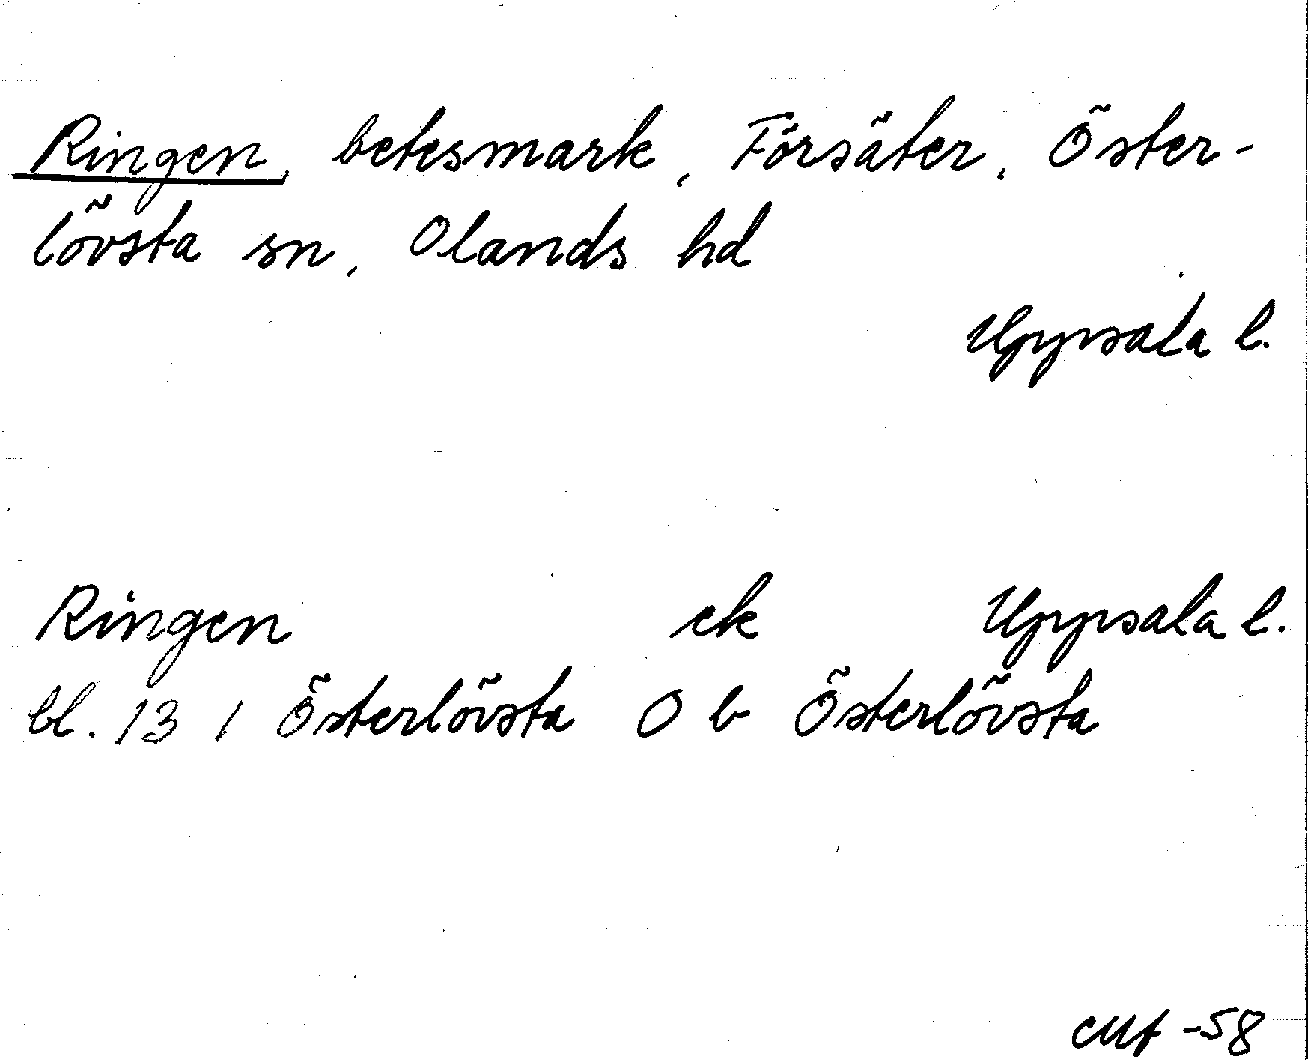 Ringen, betesmark, Försäter, Öster-
lövsta sn, Olands hd
Uppsala l.
Ringen ek Uppsala l.
bl. 13 / Österlövsta O b Österlövsta
-58